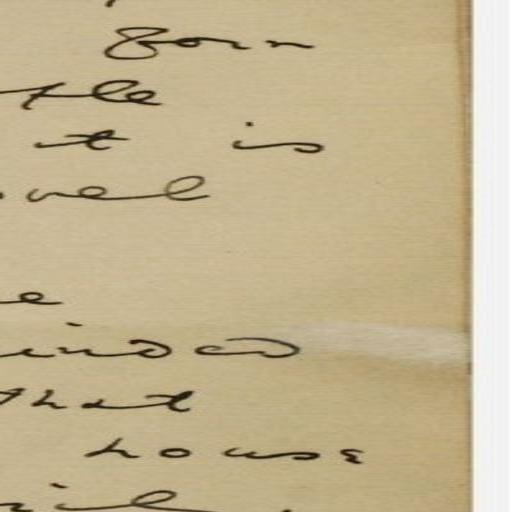 born
tle
it is
vel
e
inded
that
house